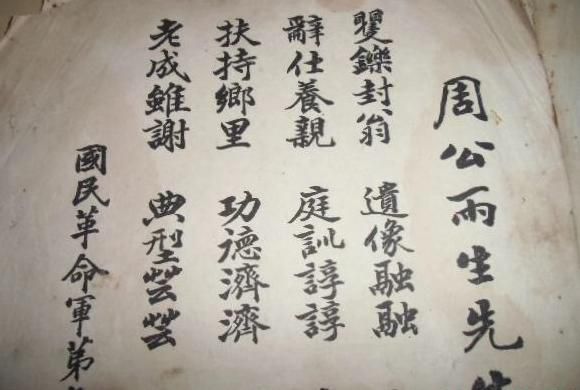 周公雨生先生
矍鑠封翁 遺像融融
辭仕養親 庭訓諄諄
扶持鄉里 功德濟濟
老成雖謝 典型芸芸
國民革命軍第